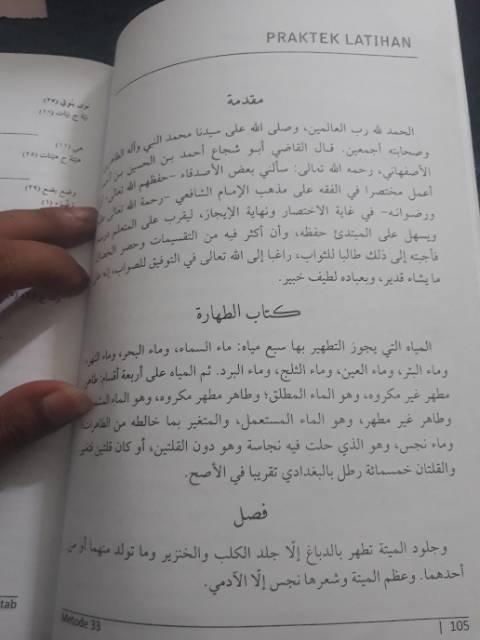 PRAKTEK LATIHAN
نوى ينوي (٣٣)
نية ج نيات (١١)
هي (١١)
هيئة ج هيئات (٢٥)
وضع يضع (٢٩)
مقدمة
الحمد لله رب العالمين، وصلى الله على سيدنا محمد النبي وآله الطاهرين
وصحابته أجمعين. قال القاضي أبو شجاع أحمد بن الحسين بن أحمد
الأصفهاني، رحمه الله تعالى: سألني بعض الأصدقاء -حفظهم الله تعالى- أن
أعمل مختصرا في الفقه على مذهب الإمام الشافعي -رحمة الله تعالى عليه
ورضوانه- في غاية الاختصار ونهاية الإيجاز، ليقرب على المتعلم درسه
ويسهل على المبتدئ حفظه، وأن أكثر فيه من التقسيمات وحصر الخصال
فأجبته إلى ذلك طالبا للثواب، راغبا إلى الله تعالى في التوفيق للصواب، إنه على
ما يشاء قدير، وبعباده لطيف خبير.
كتاب الطهارة
المياه التي يجوز التطهير بها سبع مياه: ماء السماء، وماء البحر، وماء النهر،
وماء البئر، وماء العين، وماء الثلج، وماء البرد. ثم المياه على أربعة أقسام: طاهر
مطهر غير مكروه، وهو الماء المطلق؛ وطاهر مطهر مكروه، وهو الماء
وطاهر غير مطهر، وهو الماء المستعمل، والمتغير بما خالطه من الطاهرات
وماء نجس، وهو الذي حلت فيه نجاسة وهو دون القلتين، أو كان قلتين فتغير
والقلتان خمسمائة رطل بالبغدادي تقريبا في الأصح.
فصل
وجلود الميتة تطهر بالدباغ إلّا جلد الكلب والخنزير وما تولد منهما أو من
أحدهما. وعظم الميتة وشعرها نجس إلّا الآدمي.
Metode 33
| 105